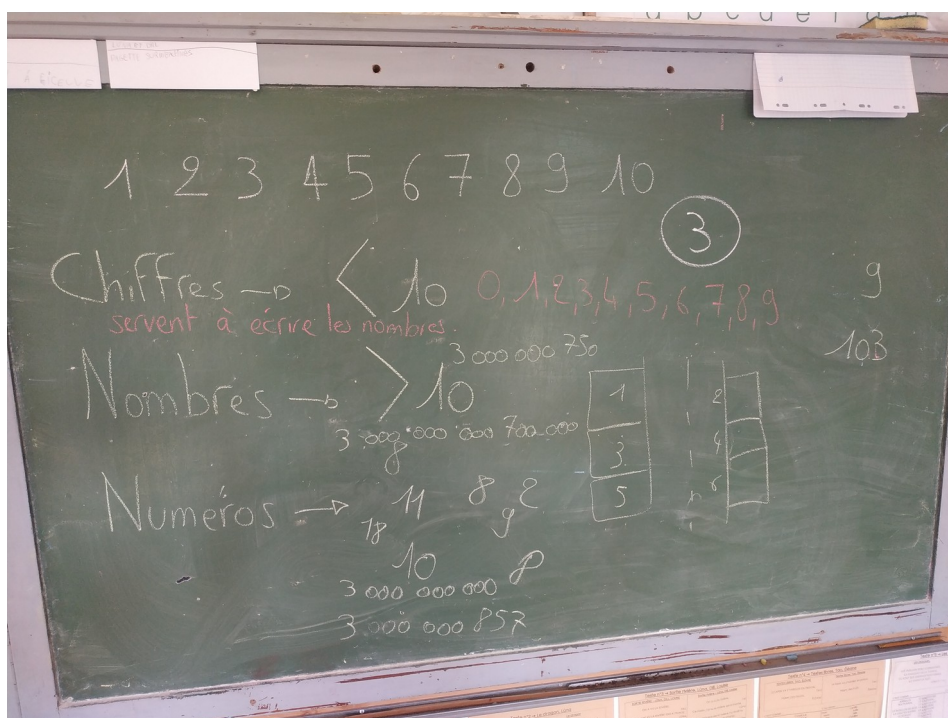 a b c d e f
1 2 3 4 5 6 7 8 9 10
3
Chiffres → < 10 0, 1, 2, 3, 4, 5, 6, 7, 8, 9
9
servent à écrire les nombres.
103
3 000 000 750
Nombres → > 10
1 2
3 4
5 6
Numéros → 11 8 2
18 9
10 8
3 000 000 000
3 000 000 857